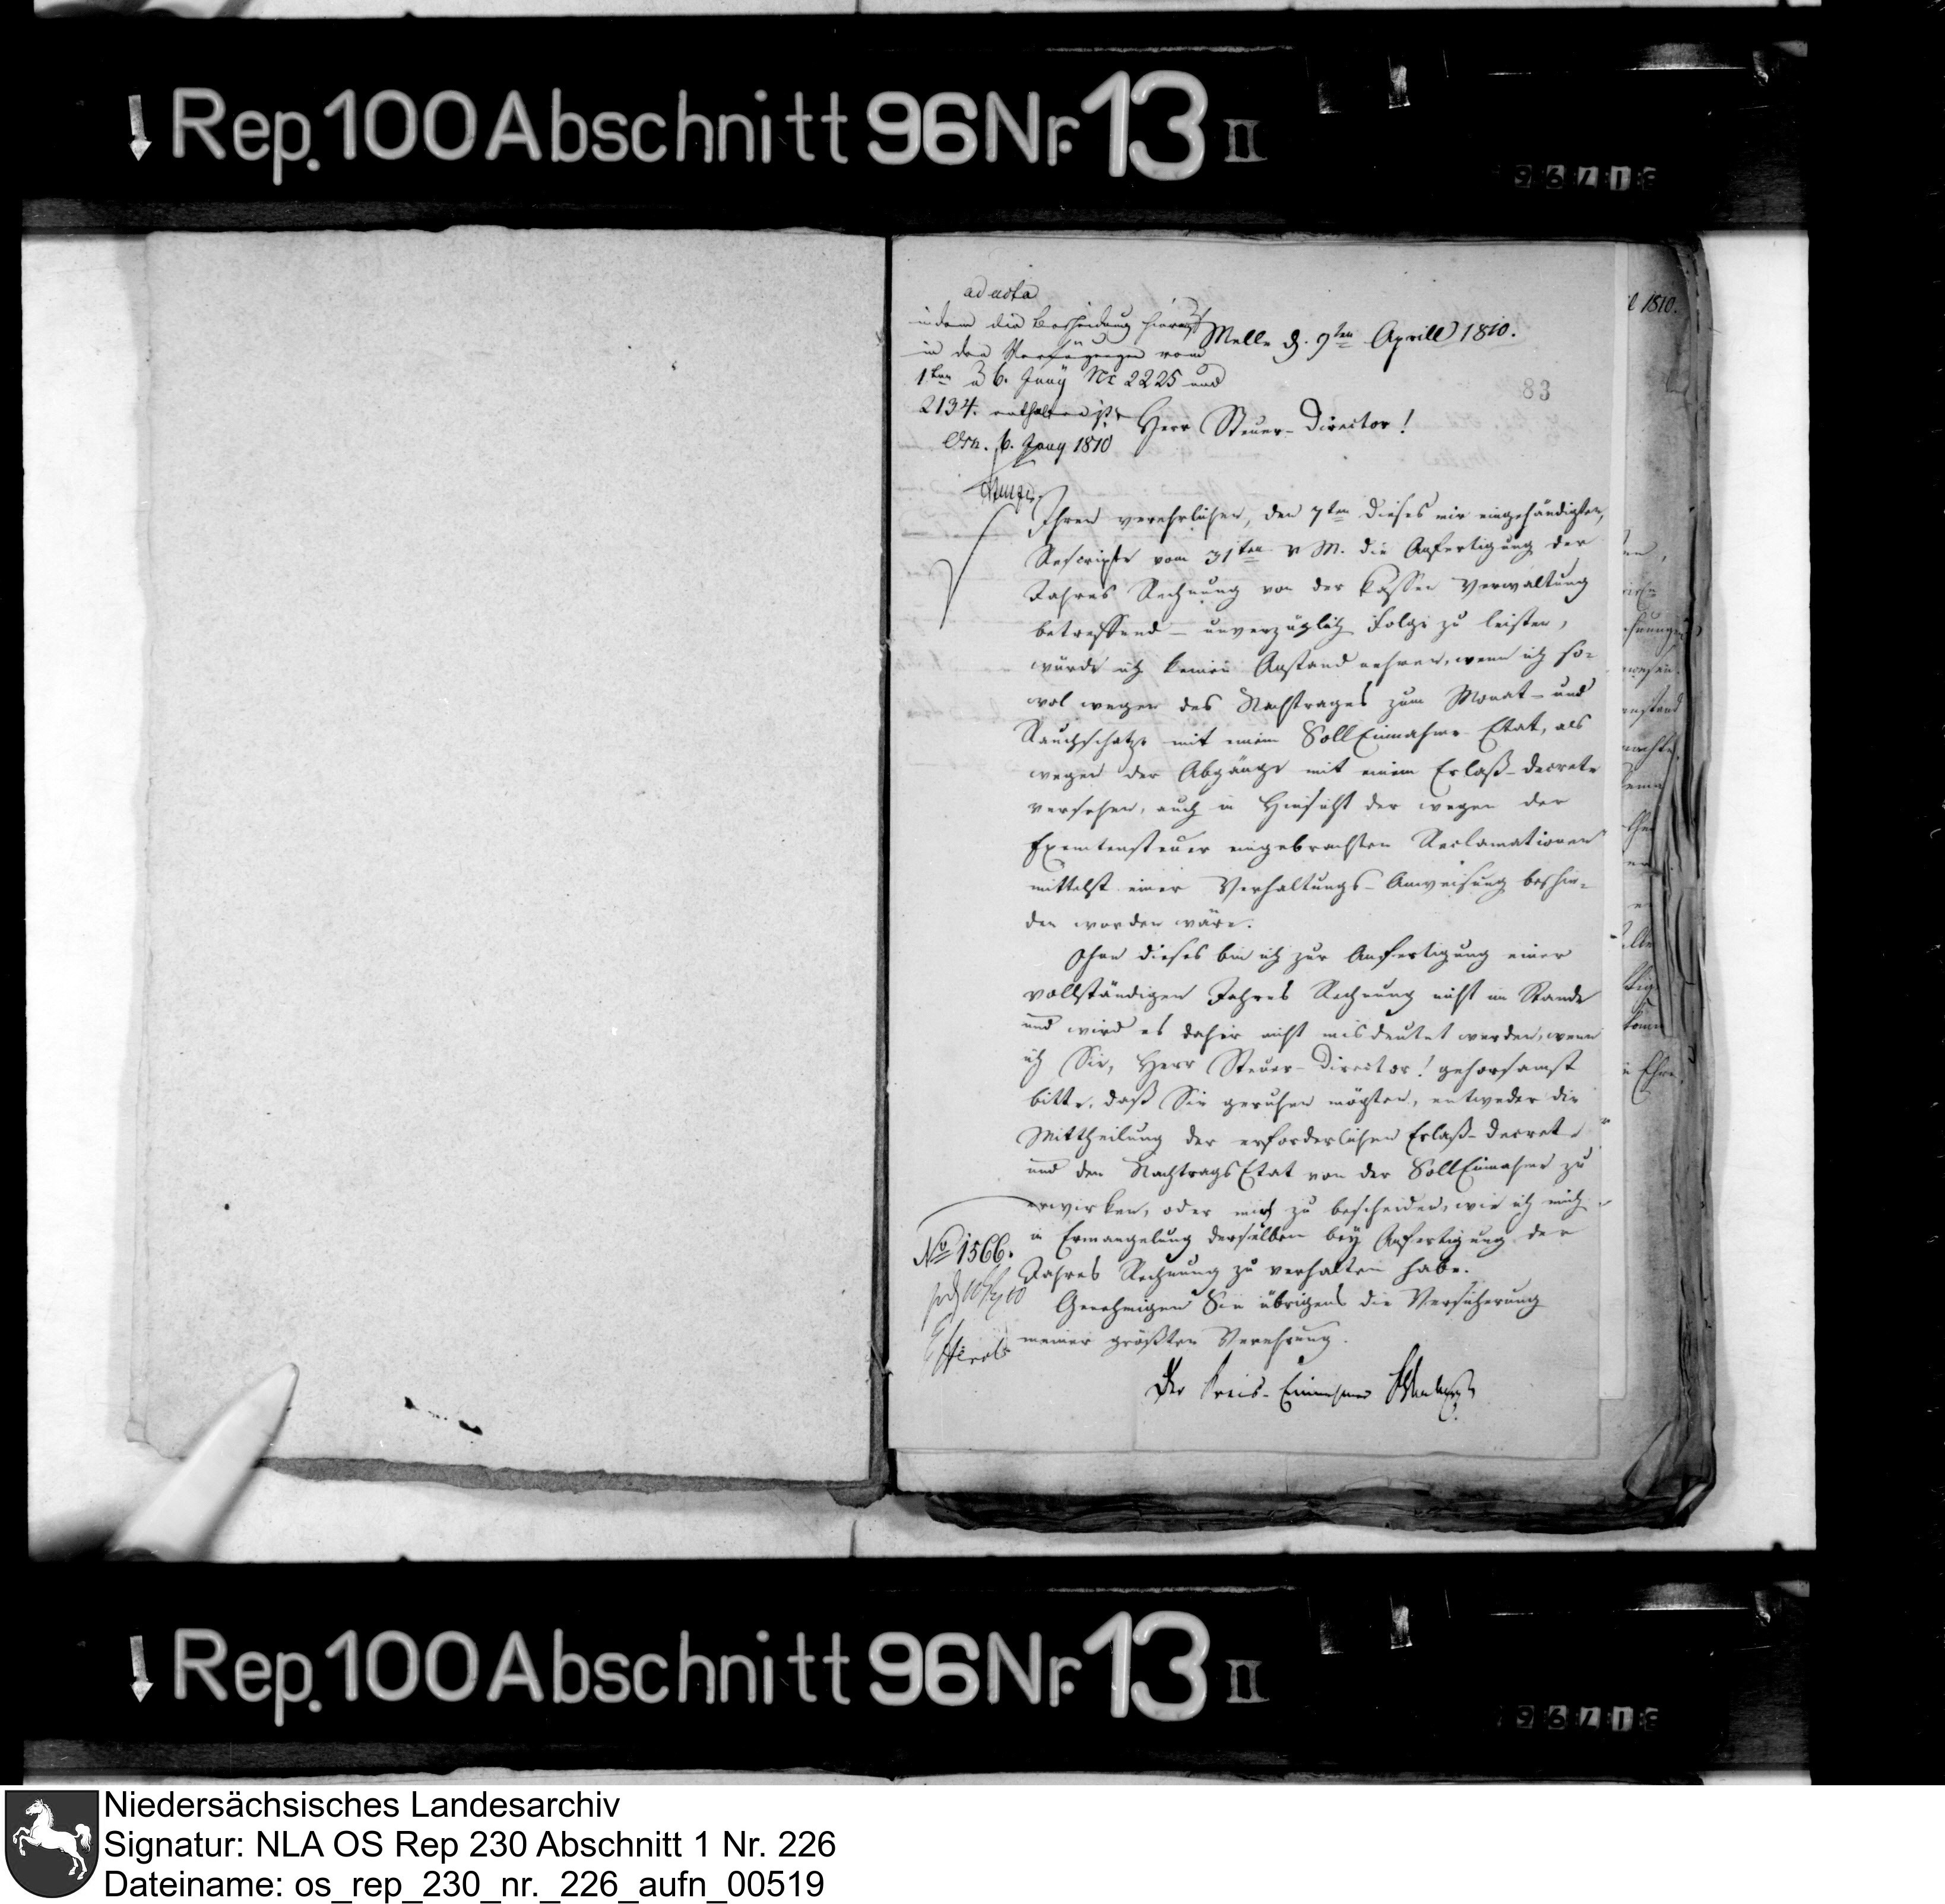 Rep. 100 Abschnitt 96 Nr. 13 II
ad acta
indem die Bescheidung hierauf
in den Verfügungen vom
1ten u 6. Juny Nr 2225 und
2134. enthalten ist.
Osn. 6. Juny 1810
Melle d. 9ten Aprill 1810.
83
Herr Steuer-Director!
Ihrem verehrlichen, den 7ten dieses mir eingehändigten,
Rescripte vom 31ten v M. die Anfertigung der
Jahres Rechnung von der Cassen Verwaltung
betreffend – unverzüglich Folge zu leisten,
würde ich keinen Anstand nehmen, wenn ich so-
wol wegen des Nachtrages zum Monat- und
Rauchschatze mit einem Soll Einnahme Etat, als
wegen der Abgänge mit einem Erlaß-Decrete
versehen, auch in Hinsicht der wegen der
Exemtensteuer eingebrachten Reclamationen
mittelst einer Verhaltungs-Anweisung beschie-
den worden wäre.
Ohne dieses bin ich zur Anfertigung einer
vollständigen Jahres Rechnung nicht im Stande
und wird es daher nicht misdeutet werden, wenn
ich Sie, Herr Steuer-Director! gehorsamst
bitte, daß Sie geruhen mögten, entweder die
Mittheilung der erforderlichen Erlaß-Decrete
und den Nachtrags Etat von der Soll Einnahme zu
erwirken, oder mich zu bescheiden, wie ich mich
in Ermangelung derselben bey Anfertigung der
Jahres Rechnung zu verhalten habe.
Genehmigen Sie übrigens die Versicherung
meiner größten Verehrung.
Der Kreis-Einnehmer
No 1566.
l 1810.
Rep. 100 Abschnitt 96 Nr. 13 II
Niedersächsisches Landesarchiv
Signatur: NLA OS Rep 230 Abschnitt 1 Nr. 226
Dateiname: os_rep_230_nr._226_aufn_00519